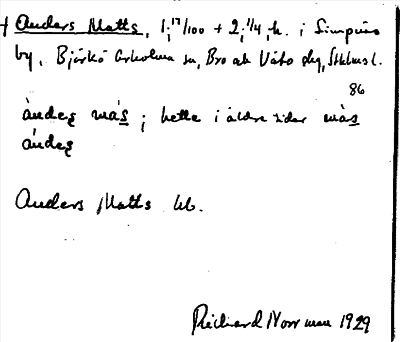 + Anders Matts, 1;17/100 + 2;1/4, h. i Simpnäs
by, Björkö Arholma sn, Bro ak Väto slg, Sthlms l.
86
àndeʂ màs; hette i äldre tider màs
ándeʂ
Anders Matts lb.
Richard Norrman 1929